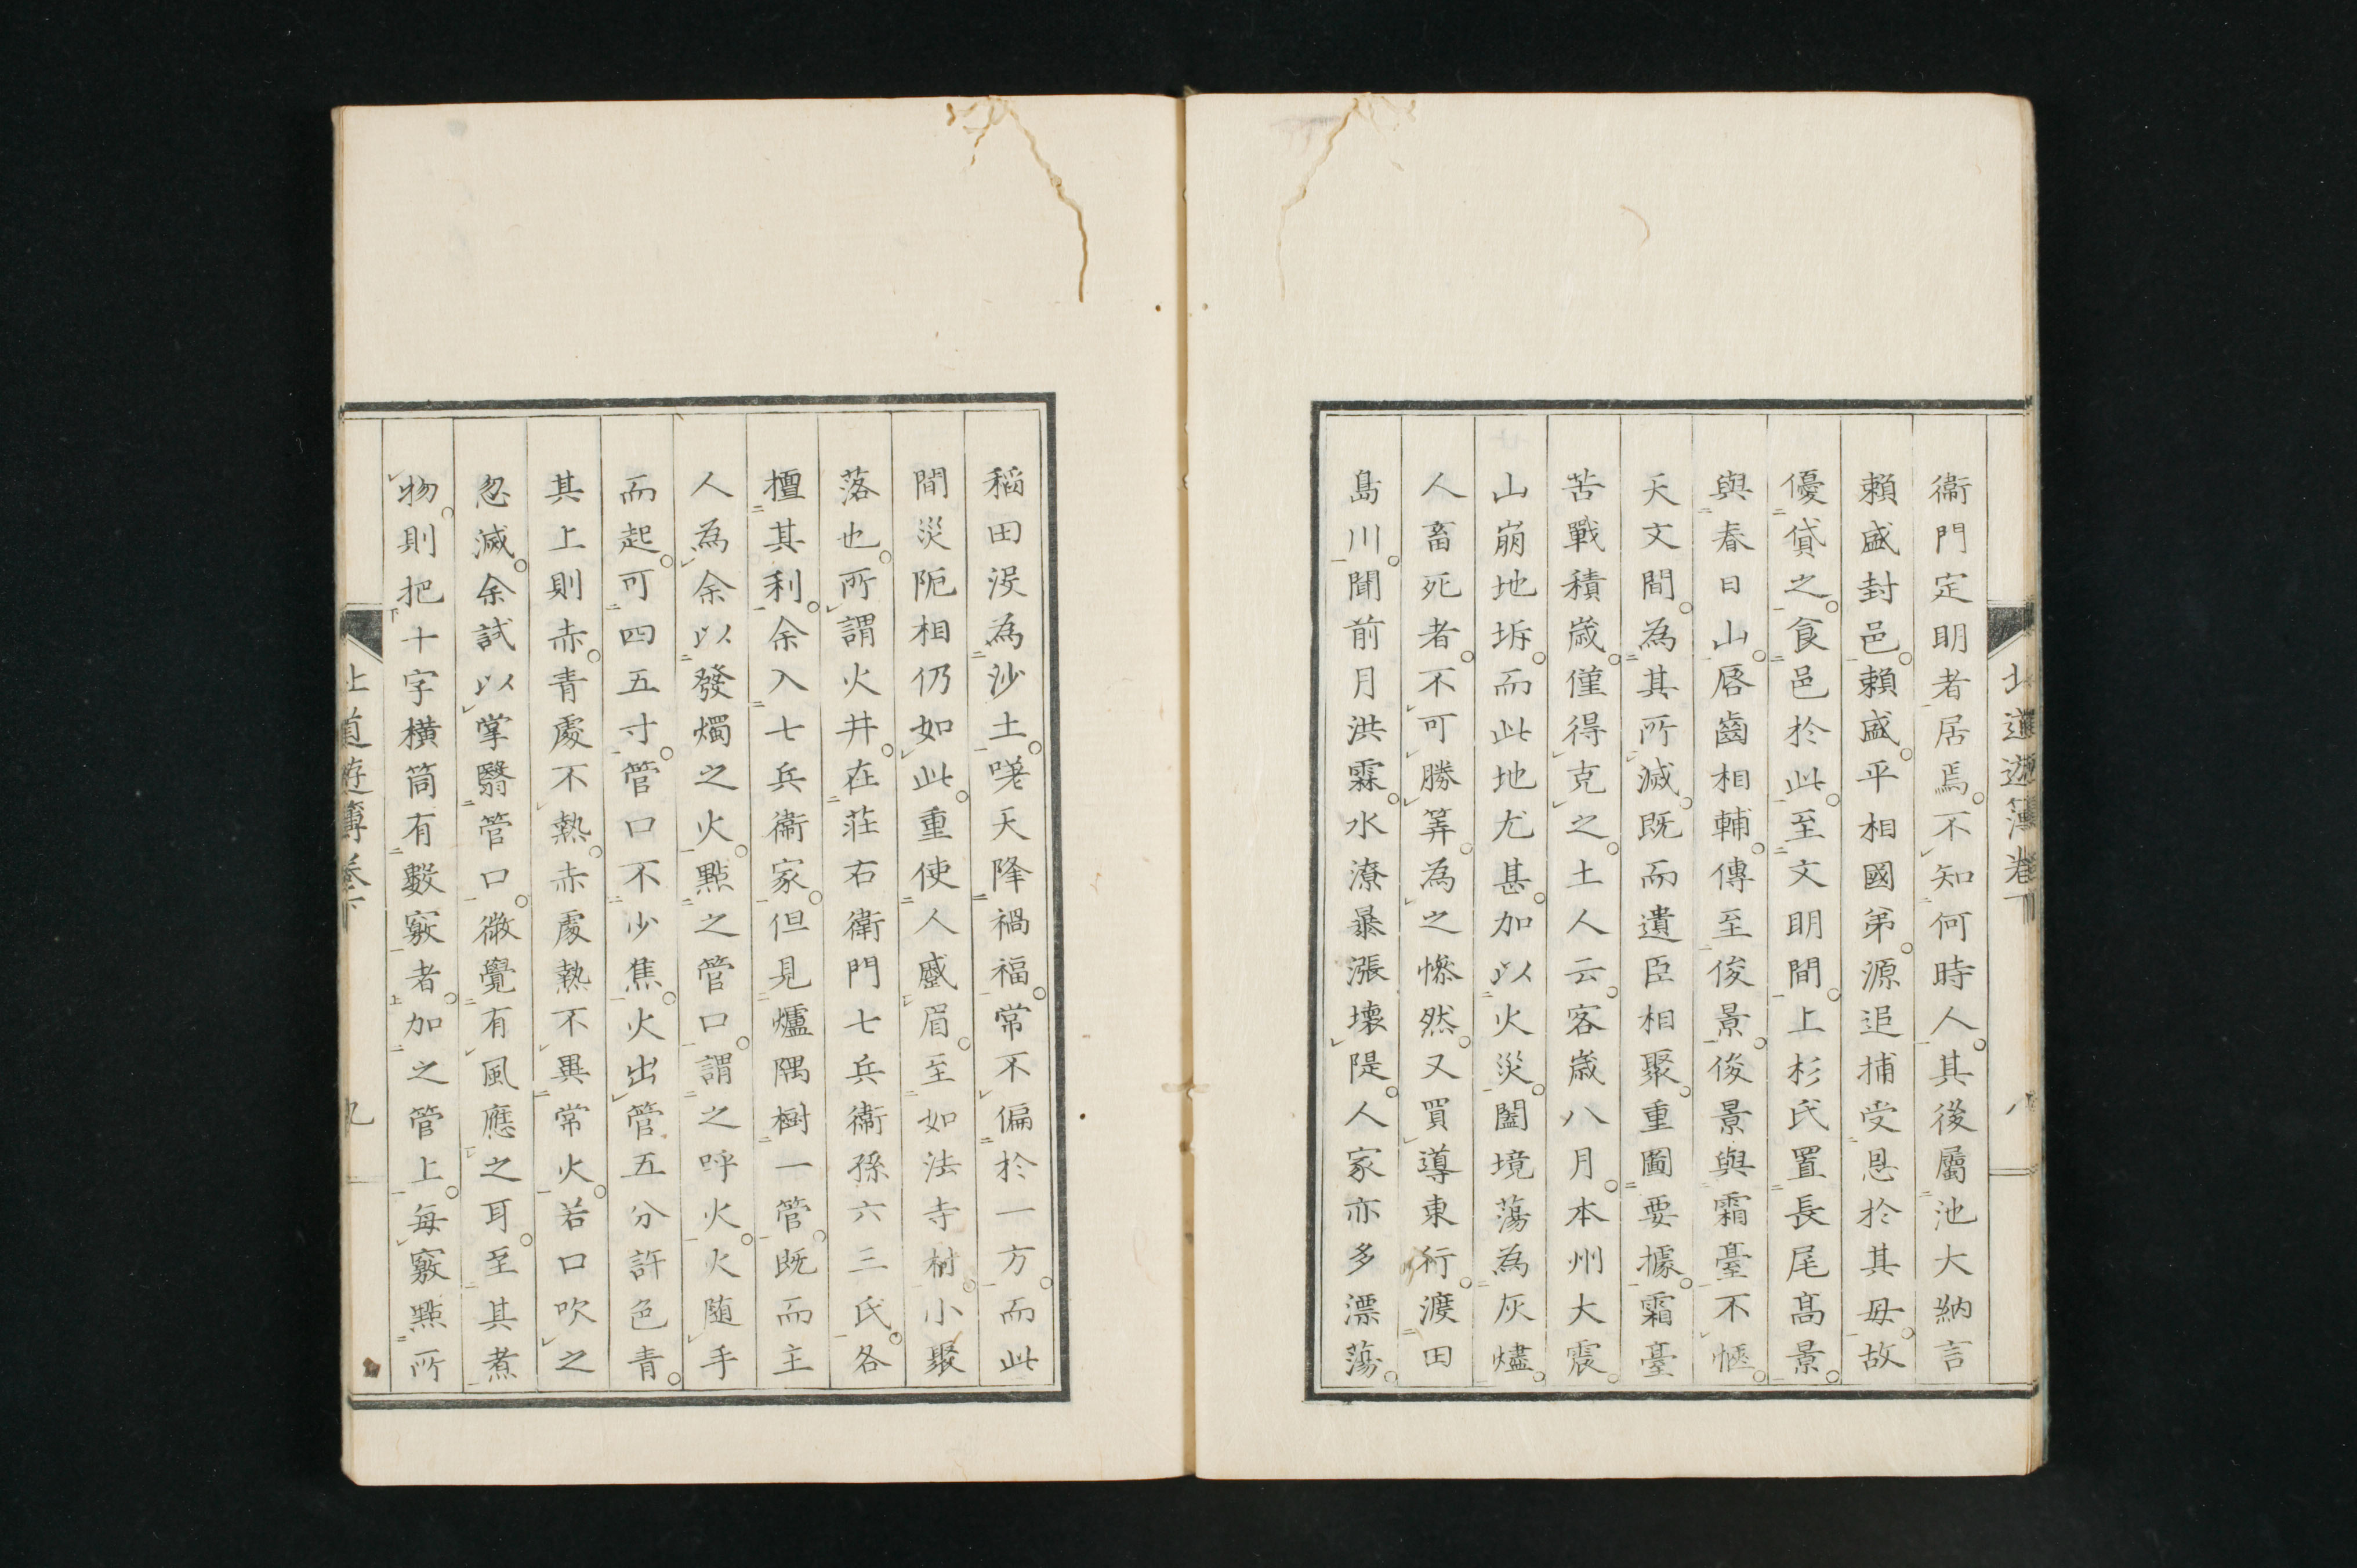 北道遊簿卷下
八
衞門定明者居焉。不知何時人。其後屬池大納言
賴盛封邑。賴盛。平相國弟。源追捕受恩於其母。故
優貸之。食邑於此。至文明間。上杉氏置長尾髙景。
與春日山。唇齒相輔。傳至俊景。俊景與霜臺不愜。
天文間。為其所滅。既而遺臣相聚。重圖要據。霜臺
苦戰積歳。僅得克之。土人云。客歳八月。本州大震。
山崩地坼。而此地尤甚。加以火災。闔境蕩為灰燼。
人畜死者。不可勝筭。為之慘然。又買導東行。渡田
島川。聞前月洪霖。水潦暴漲壞隄。人家亦多漂蕩。
稻田沒為沙土。嘆天降禍福。常不偏於一方。而此
間災阨相仍如此。重使人蹙眉。至如法寺村。小聚
落也。所謂火井。在莊右衛門七兵衞孫六三氏。各
擅其利。余入七兵衞家。但見爐隅樹一管。既而主
人為余以發燭之火。點之管口。謂之呼火。火随手
而起。可四五寸。管口不少焦。火出管五分許色青。
其上則赤。青處不熱。赤處熱不異常火。若口吹之
忽滅。余試以掌翳管口。微覺有風應之耳。至其煮
物。則把十字横筒有數竅者。加之管上。每竅點所
北道遊簿卷下
九